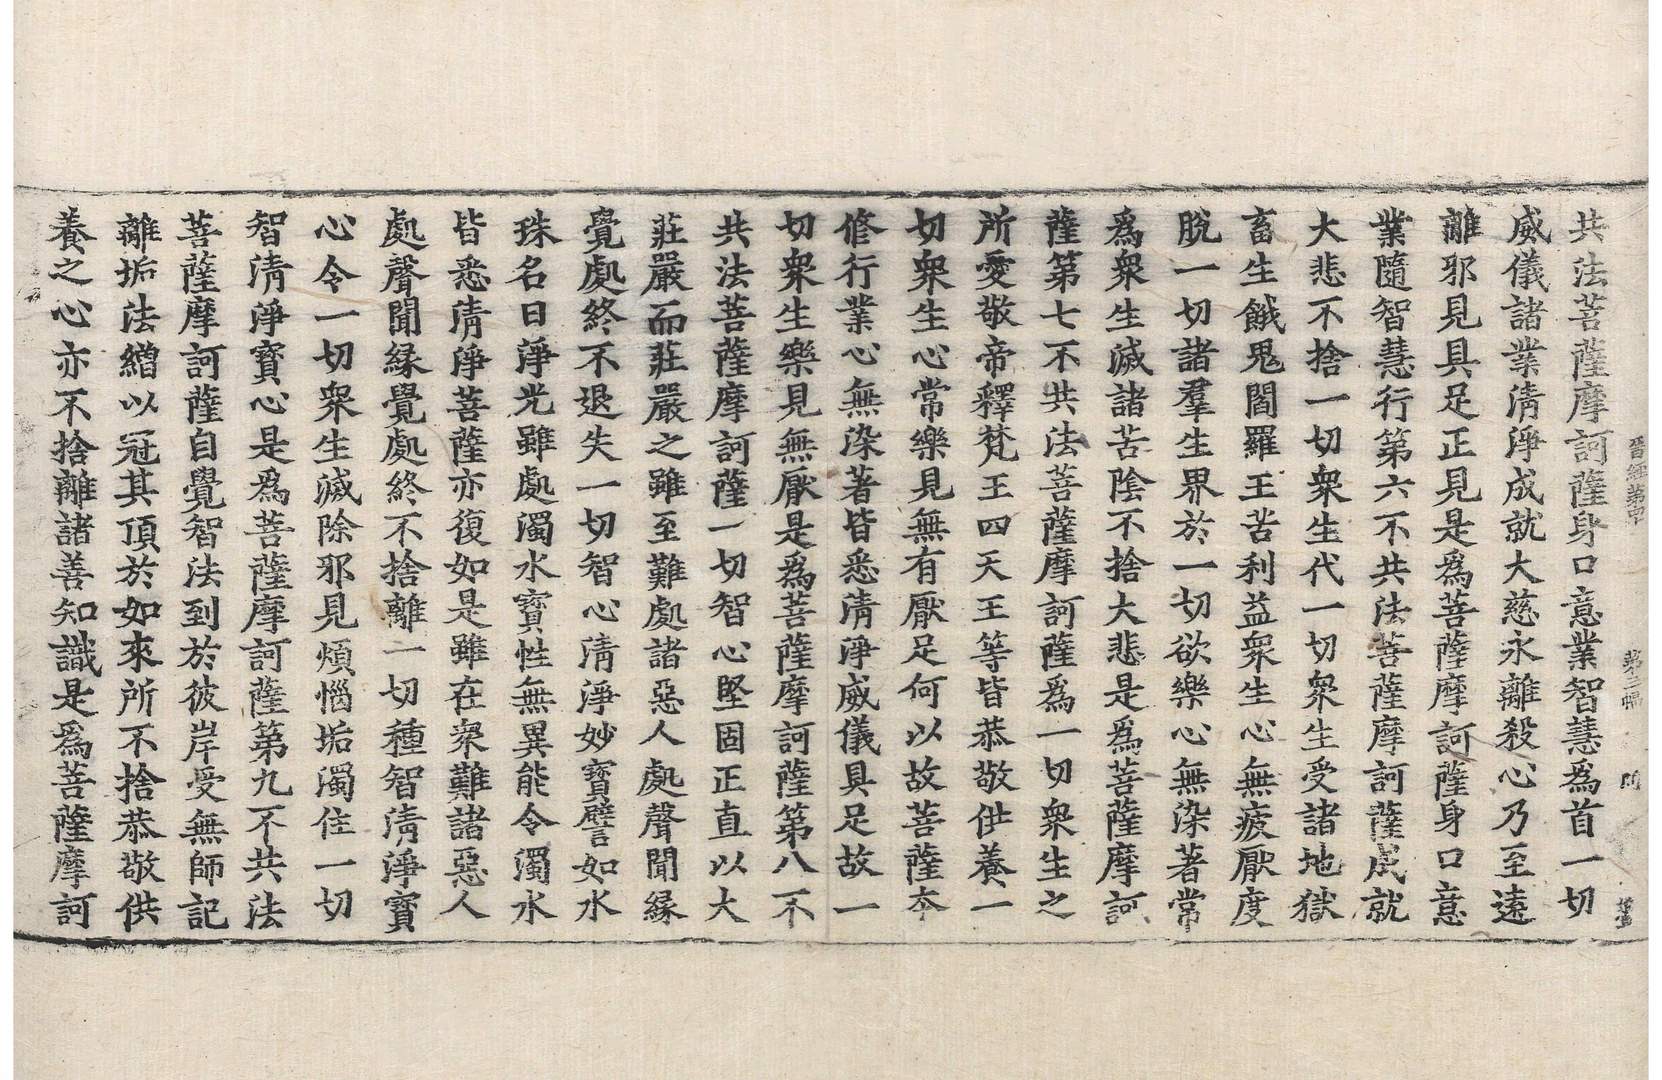 晋經第四十 第三幅 問
共法菩薩摩訶薩身口意業智慧爲首一切
威儀諸業清淨成就大慈永離殺心乃至遠
離邪見具足正見是爲菩薩摩訶薩身口意
業隨智慧行第六不共法菩薩摩訶薩成就
大悲不捨一切衆生代一切衆生受諸地獄
畜生餓鬼閻羅王苦利益衆生心無疲厭度
脫一切諸羣生界於一切欲樂心無染著常
爲衆生滅諸苦陰不捨大悲是爲菩薩摩訶
薩第七不共法菩薩摩訶薩爲一切衆生之
所愛敬帝釋梵王四天王等皆恭敬供養一
切衆生心常樂見無有厭足何以故菩薩夲
修行業心無染著皆悉清淨威儀具足故一
切衆生樂見無厭是爲菩薩摩訶薩第八不
共法菩薩摩訶薩一切智心堅固正直以大
莊嚴而莊嚴之雖至難處諸惡人處聲聞縁
覺處終不退失一切智心清淨妙寳譬如水
珠名曰淨光雖處濁水寳性無異能令濁水
皆悉清淨菩薩亦復如是雖在衆難諸惡人
處聲聞縁覺處終不捨離一切種智清淨寳
心令一切衆生滅除邪見煩惱垢濁住一切
智清淨寳心是爲菩薩摩訶薩第九不共法
菩薩摩訶薩自覺智法到於彼岸受無師記
離垢法繒以冠其頂於如來所不捨恭敬供
養之心亦不捨離諸善知識是爲菩薩摩訶